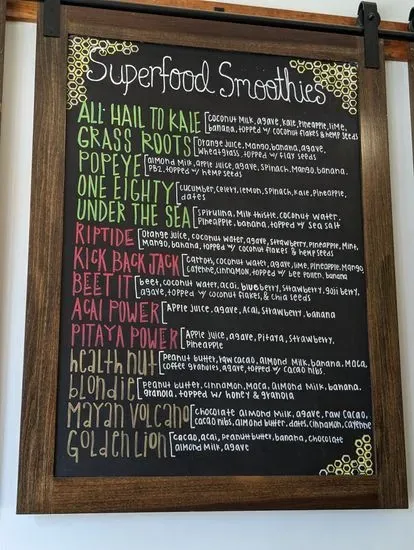 Superfood Smoothies
ALL HAIL TO KALE [coconut milk, agave, kale, pineapple, lime,
banana, topped w/ coconut flakes & hemp seeds
GRASS ROOTS [orange juice, mango, banana, agave,
wheatgrass, topped w/ flax seeds
POPEYE [almond milk, apple juice, agave, spinach, mango, banana,
PB2, topped w/ hemp seeds
ONE EIGHTY [cucumber, celery, lemon, spinach, kale, pineapple,
dates
UNDER THE SEA [spirulina, milk thistle, coconut water,
pineapple, banana, topped w/ sea salt
RIPTIDE [orange juice, coconut water, agave, strawberry, pineapple, mint,
mango, banana, topped w/ coconut flakes & hemp seeds
KICK BACK JACK [carrots, coconut water, agave, lime, pineapple, mango
cayenne, cinnamon, topped w/ bee pollen, banana
BEET IT [beet, coconut water, acai, blueberry, strawberry, goji berry,
agave, topped w/ coconut flakes & chia seeds
ACAI POWER [Apple juice, agave, acai, strawberry, banana
PITAYA POWER [Apple juice, agave, pitaya, strawberry,
pineapple
health nut [peanut butter, raw cacao, almond milk, banana, maca,
coffee granules, agave, topped w/ cacao nibs.
blondie [peanut butter, cinnamon, maca, almond milk, banana,
granola, topped w/ honey & granola
Mayan Volcano [chocolate almond milk, agave, raw cacao,
cacao nibs, almond butter, dates, cinnamon, cayenne
Golden Lion [cacao, acai, peanut butter, banana, chocolate
almond milk, agave